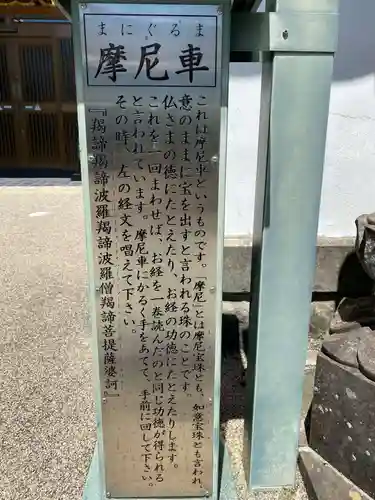 まにぐるま
摩尼車
これは摩尼車というものです。「摩尼」とは摩尼宝珠とも、如意宝珠とも言われ、
意のままに宝を出すと言われる珠のことです。
仏さまの徳にたとえたり、お経の功徳にたとえたりします。
これを一回まわせば、お経を一巻読んだのと同じ功徳が得られる
と言われています。摩尼車にかるく手をあてて、手前に回して下さい。
その時、左の経文を唱えて下さい。
『羯諦羯諦波羅羯諦波羅僧羯諦菩提薩婆訶』